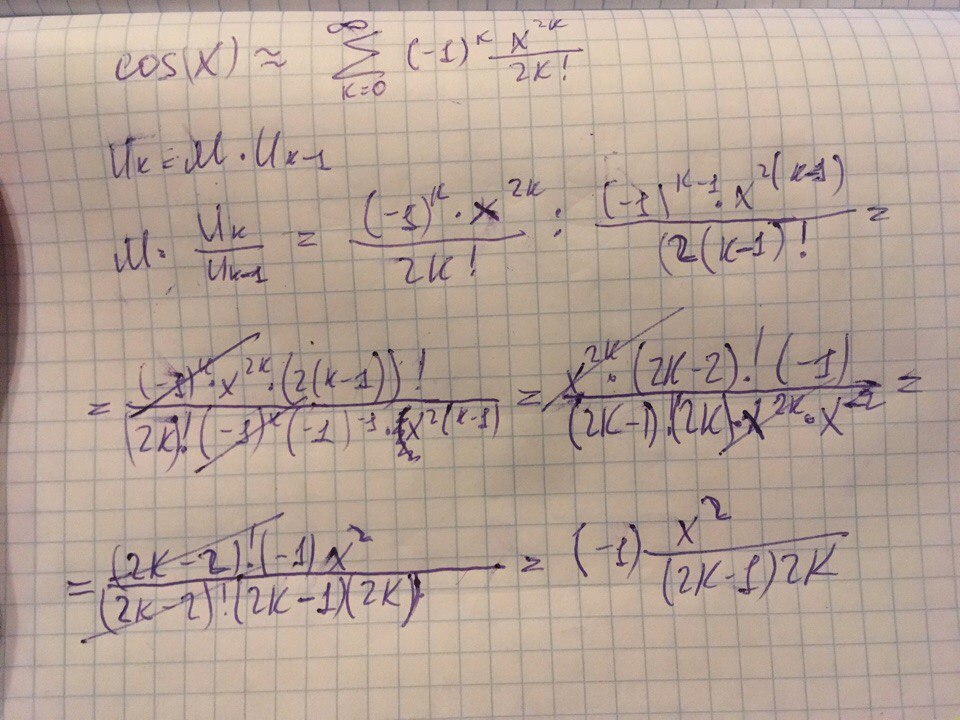 cos(x) ≈ ∑_{k=0}^{∞} (-1)^k x^{2k} / 2k!
U_k = M · U_{k-1}
M = U_k / U_{k-1} = (-1)^k · x^{2k} / 2k! : (-1)^{k-1} · x^{2(k-1)} / (2(k-1)! =
= (-1)^k · x^{2k} · (2(k-1))! / (2k)! (-1)^k (-1)^{-1} · x^{2(k-1)} = x^{2k} · (2k-2)! (-1) / (2k-1)! (2k) · x^{2k} · x^{-2} =
= (2k-2)! (-1) x^2 / (2k-2)! (2k-1)(2k) = (-1) x^2 / (2k-1)2k